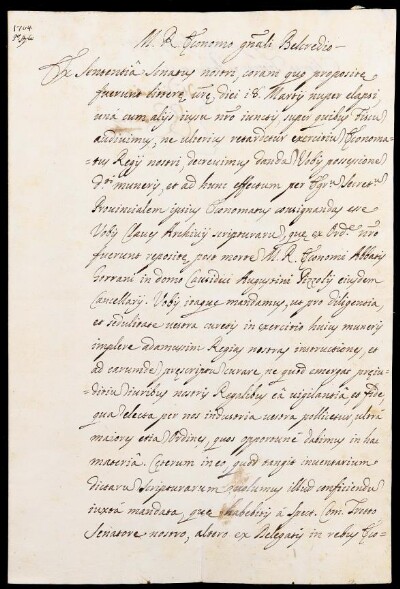 1704
M. R. Economo gñali Belcredio
Ex Sententiâ Senatus nostri, coram quo propositæ
fuerunt litteræ, vræ, diei 18. Martij nuper elapsi
unà cum alijs iussu nro iunctis, super quibus Fiscũ
audivimus, ne ulterius retardetur exercitiũ Economa-
tus Regij nostri, decrevimus dandã Vobis possessionẽ
d.ti muneris, et ad hunc effectum per Egr. Secret.m
Provincialem ipsius Economatus consignandas esse
Vobis Claves Archivij scripturarũ, quæ ex Ord. nro
fuerunt repositæ, post mortẽ M. R. Economi Abbatis
Serrani in domo Causidici Augustini Pezzolij eiusdem
Cancellarij. Vobis itaque mandamus, ut pro diligentia,
et sedulitate vestra curetis in exercitio huius muneris
implere adamussim Regias nostras instructiones, et
ad earumdẽ præscriptũ curare, ne quid emergat præiu-
ditiũ iuribus nostris Regalibus eâ vigilantiâ, et fide,
qua electa per nos industria vestra pollicetur, ultrà
maiores etiã Ordines, quos opportunè dabimus in hac
materiâ. Cæterum in eo, quod tangit inventarium
dictarũ Scripturarum volumus illud conficiendũ
iuxtà mandata, quæ habebitis à Spect. Com.
Senatore nostro, altero ex Delegatis in rebus Eco-